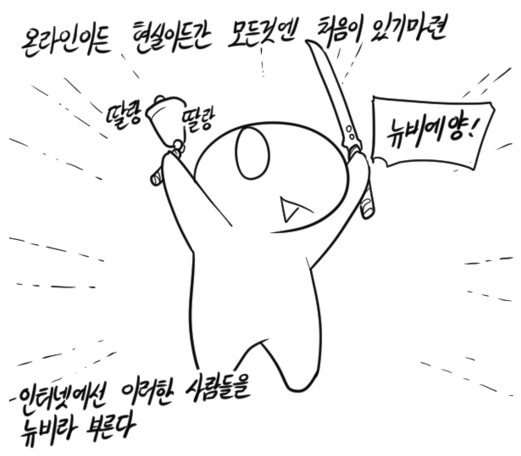 온라인이든 현실이든간 모든것엔 처음이 있기마련
딸랑
딸랑
뉴비에양!
인터넷에선 이러한 사람들을
뉴비라 부른다